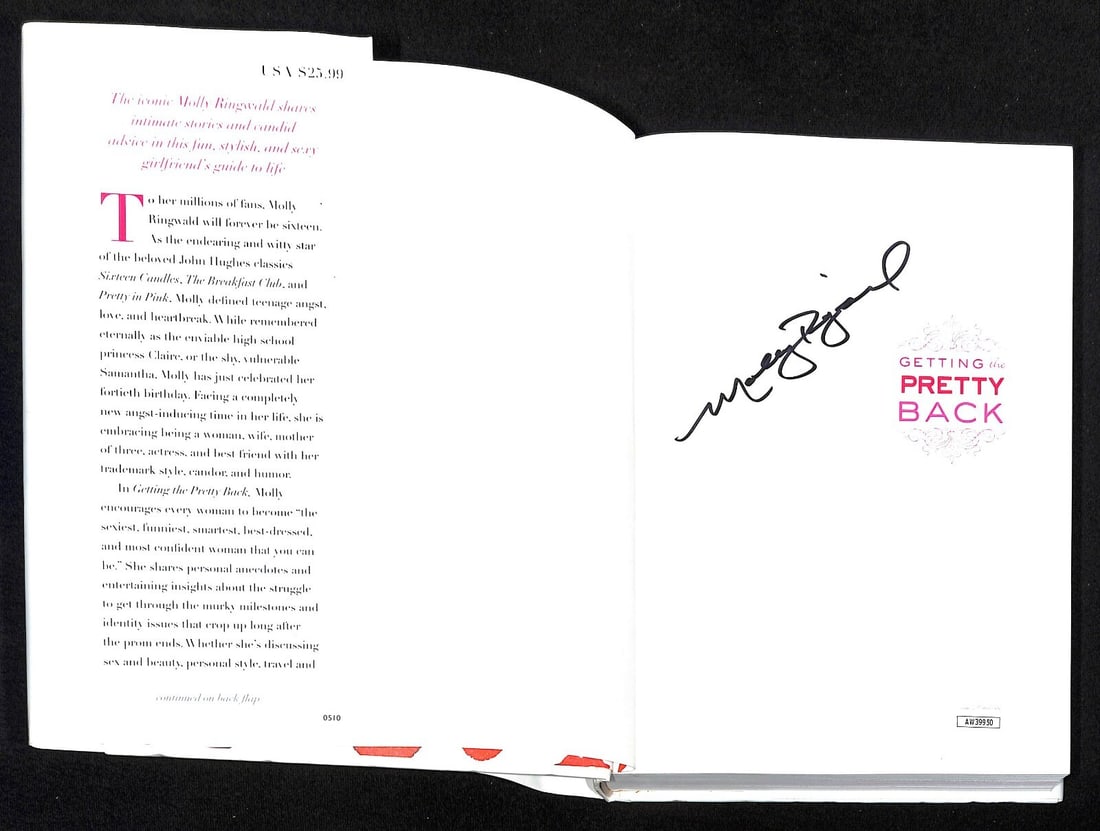 USA $25.99
The iconic Molly Ringwald shares
intimate stories and candid
advice in this fun, stylish, and sexy
girlfriend's guide to life
To her millions of fans, Molly
Ringwald will forever be sixteen.
As the endearing and witty star
of the beloved John Hughes classics
Sixteen Candles, The Breakfast Club, and
Pretty in Pink, Molly defined teenage angst,
love, and heartbreak. While remembered
eternally as the enviable high school
princess Claire, or the shy, vulnerable
Samantha, Molly has just celebrated her
fortieth birthday. Facing a completely
new angst-inducing time in her life, she is
embracing being a woman, wife, mother
of three, actress, and best friend with her
trademark style, candor, and humor.
In Getting the Pretty Back, Molly
encourages every woman to become “the
sexiest, funniest, smartest, best-dressed,
and most confident woman that you can
be.” She shares personal anecdotes and
entertaining insights about the struggle
to get through the murky milestones and
identity issues that crop up long after
the prom ends. Whether she's discussing
sex and beauty, personal style, travel and
continued on back flap
0510
Molly Ringwald
GETTING the
PRETTY
BACK
AW39950